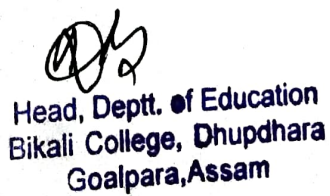 Head, Deptt. of Education
Bikali College, Dhupdhara
Goalpara,Assam